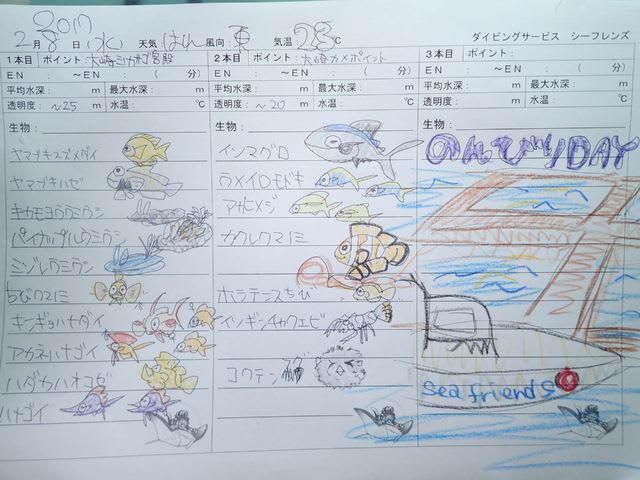 2017
2月8日(水) 天気 はれ 風向: 東 気温 23℃ ダイビングサービス シーフレンズ
1本目 ポイント: 大崎ミカオ宮殿
EN : ～EN : ( 分)
平均水深: m 最大水深: m
透明度: ～25 m 水温: ℃
生物:
ヤマブキスズメダイ
ヤマブキハゼ
キカモヨウウミウシ
パイナップルウミウシ
ミゾレウミウシ
ちびクマノミ
キンギョハナダイ
アカネハナゴイ
ハダカハオコゼ
ハナゴイ
2本目 ポイント: 大崎カメポイント
EN : ～EN : ( 分)
平均水深: m 最大水深: m
透明度: ～20 m 水温: ℃
生物:
イソマグロ
ウメイロモドキ
アカヒメジ
カクレクマノミ
ホシテンスちび
イソギンチャクエビ
コクテンフグ
3本目 ポイント:
EN : ～EN : ( 分)
平均水深: m 最大水深: m
透明度: m 水温: ℃
生物:
のんびりDAY
Sea friends